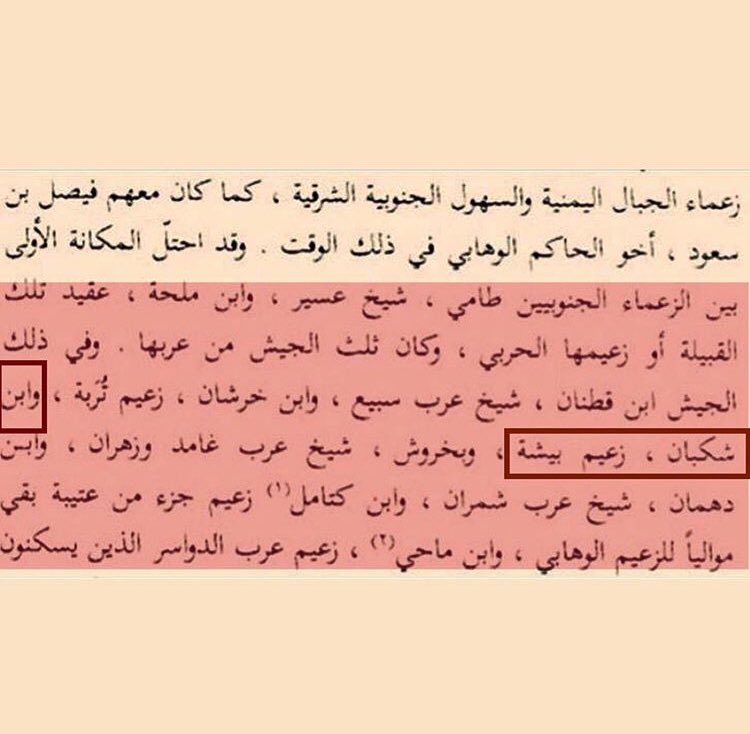 زعماء الجبال اليمنية والسهول الجنوبية الشرقية ، كما كان معهم فيصل بن
سعود ، أخو الحاكم الوهابي في ذلك الوقت . وقد احتلّ المكانة الأولى
بين الزعماء الجنوبيين طامي ، شيخ عسير ، وابن ملحة ، عقيد تلك
القبيلة أو زعيمها الحربي ، وكان ثلث الجيش من عربها . وفي ذلك
الجيش ابن قطنان ، شيخ عرب سبيع ، وابن خرشان ، زعيم تُرَبة ، وابن
شكبان ، زعيم بيشة ، وبخروش ، شيخ عرب غامد وزهران ، وابن
دهمان ، شيخ عرب شمران ، وابن كتامل(١) زعيم جزء من عتيبة بقي
موالياً للزعيم الوهابي ، وابن ماحي(٢) ، زعيم عرب الدواسر الذين يسكنون